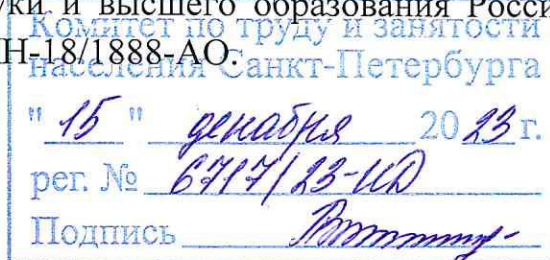 уки и высшего образования Росси
Комитет по труду и занятости
Н-18/1888-АО.
населения Санкт-Петербурга
" 15 " декабря 2023 г.
рег. № 6717/23-КД
Подпись